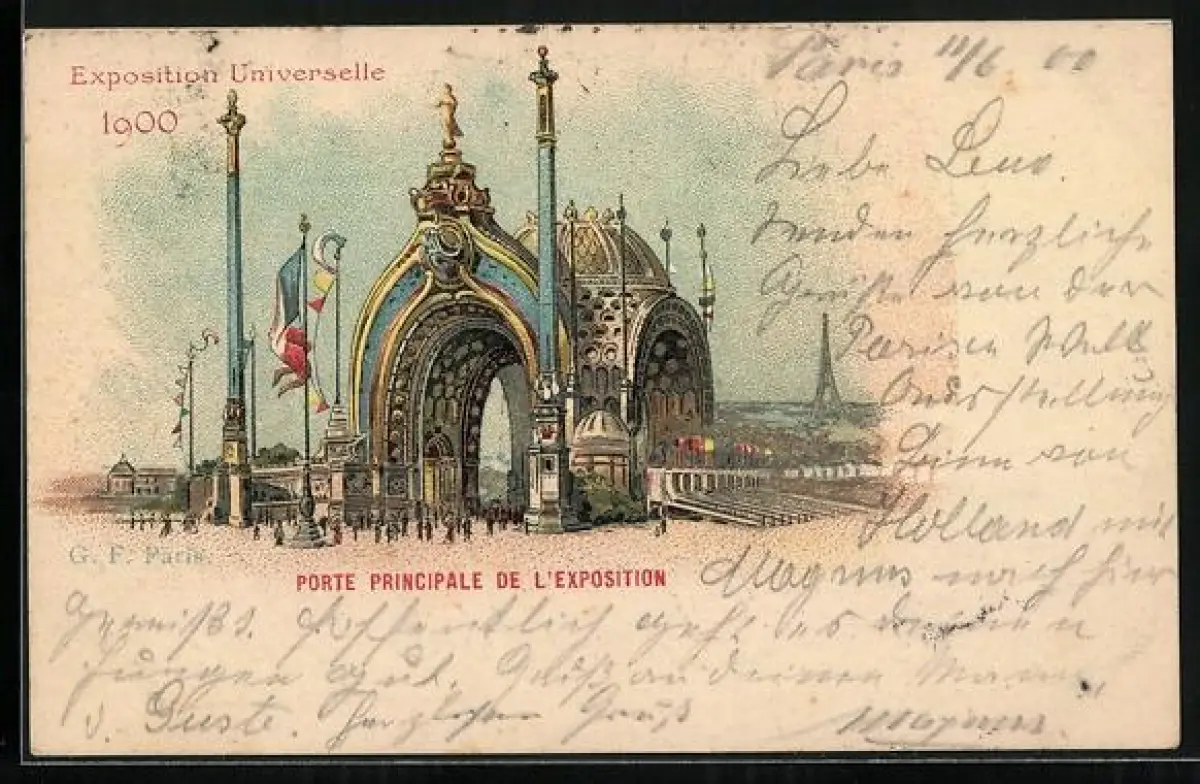 Exposition Universelle
1900
Paris 11/6 00
Liebe Leno.
senden herzliche
Grüße von der
Pariser Welt
Ausstellung
von
Holland mit
Magnus nach hier
Hoffentlich geht es deinen
Jungen gut. Gruß an deinen Mann
Guste. Herzlichen Gruß Magnus
G. F. Paris.
PORTE PRINCIPALE DE L'EXPOSITION